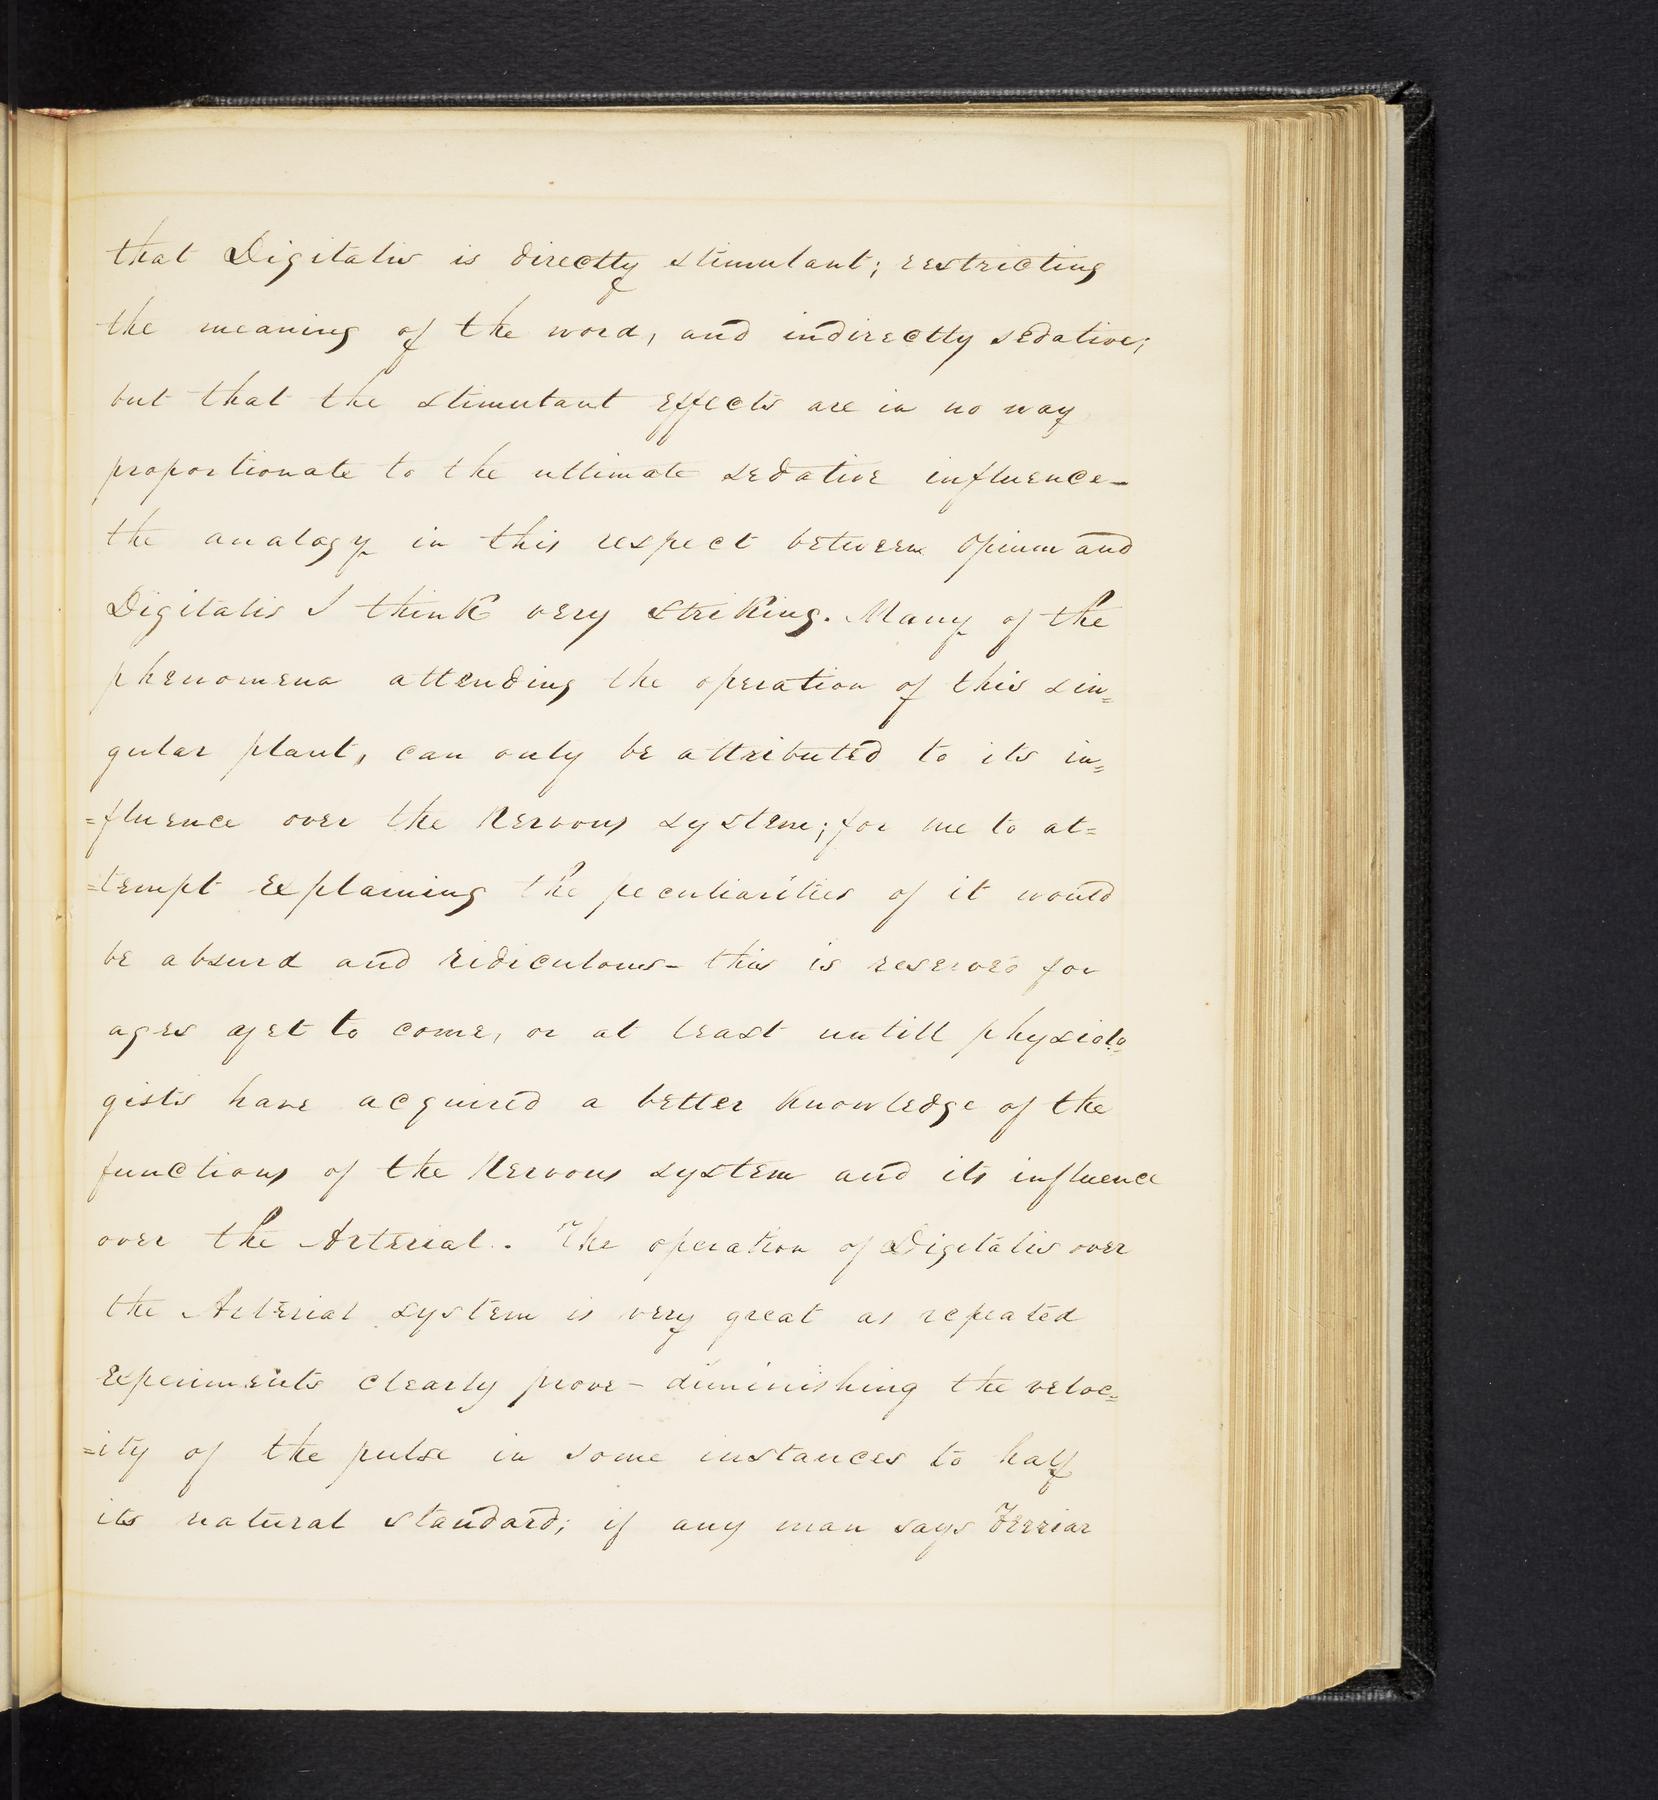 that Digitalis is directly stimulant; restricting
the meaning of the word, and indirectly sedative;
but that the stimulant effects are in no way
proportionate to the ultimate sedative influence—
the analogy in this respect between Opium and
Digitalis I think very striking. Many of the
phenomena attending the operation of this sin=
gular plant, can only be attributed to its in=
=fluence over the Nervous system; for me to at=
=tempt explaining the peculiarities of it would
be absurd and ridiculous— this is reserved for
ages yet to come, or at least untill physiolo=
gists have acquired a better knowledge of the
functions of the Nervous system and its influence
over the Arterial. The operation of Digitalis over
the Arterial system is very great as repeated
experiments clearly prove— diminishing the veloc=
=ity of the pulse in some instances to half
its natural standard; if any man says Ferriar